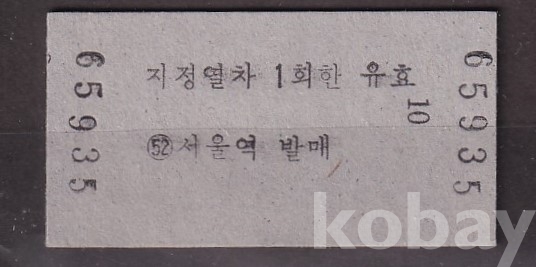 65935
지정열차 1회한 유효
10
㊾서울역 발매
65935
kobay